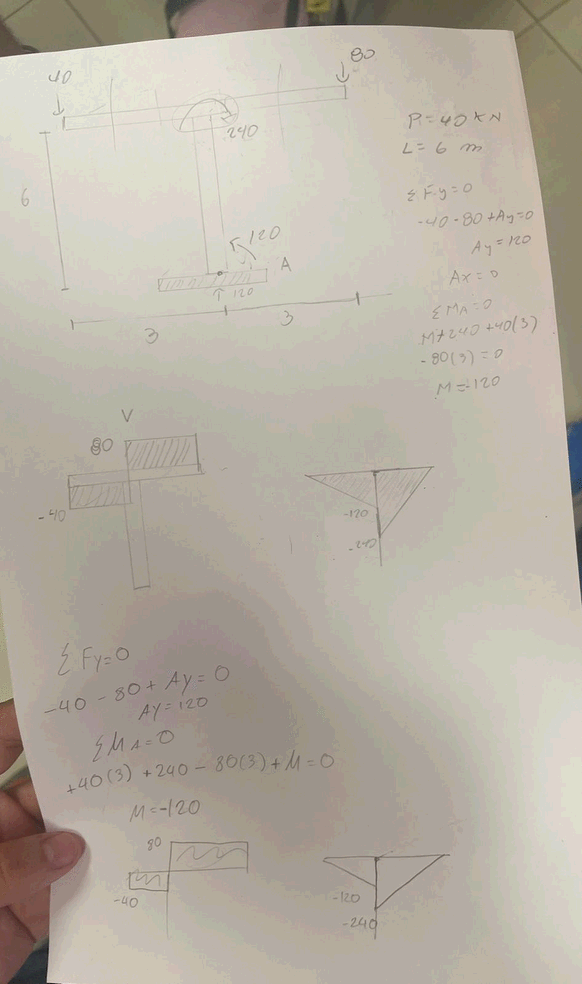 40
80
240
6
120
A
120
3
3
P=40kN
L=6 m
ΣFy=0
-40-80+Ay=0
Ay=120
Ax=0
ΣMA=0
M+240+40(3)
-80(3)=0
M=-120
V
80
-40
-120
-240
ΣFy=0
-40-80+Ay=0
Ay=120
ΣMA=0
+40(3)+240-80(3)+M=0
M=-120
80
-40
-120
-240